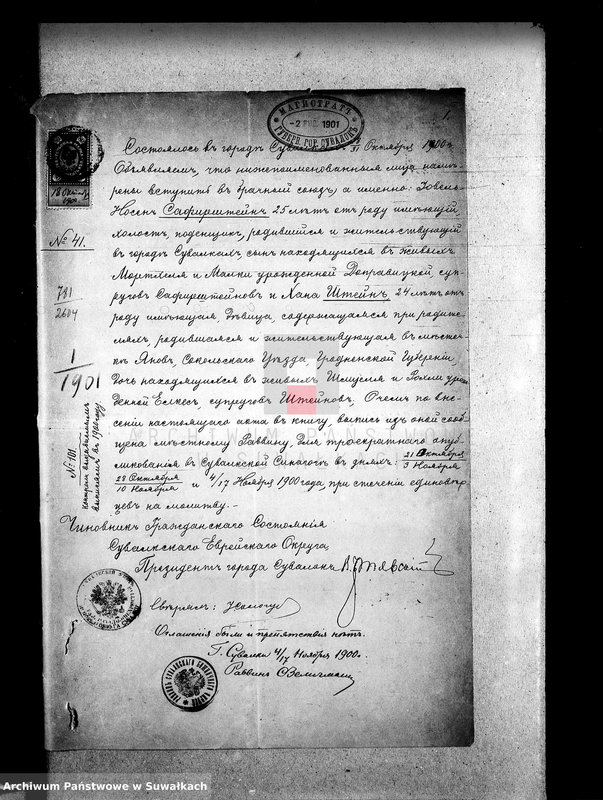 МАГИСТРАТЪ
-2 1901
ГУБЕРН. ГОР. СУВАЛОКЪ
1.
Состоялось въ городѣ 31 Октября 1900 г.
Объявляемъ, что нижепоименованныя лица намѣ-
рены вступить въ брачный союзъ, а именно:
Носенъ Сафирштейнъ 25 лѣтъ отъ роду имѣющій,
холостъ, поденщикъ, родившійся и жительствующій
въ городѣ Сувалкахъ, сынъ находящихся въ живыхъ
и Малки урожденной суп-
руговъ Сафирштейновъ и Хана Штейнъ, 24 лѣтъ отъ
роду имѣющая, дѣвица, содержащаяся при родите-
ляхъ, родившаяся и жительствующая въ мѣстеч-
кѣ Яновѣ, Сокольскаго Уѣзда, Гродненской Губерніи,
дочь находящихся въ живыхъ Шмуеля и урож-
денной супруговъ Штейновъ. О чемъ по вне-
сеніи настоящаго акта въ книгу, выпись изъ оной сооб-
щена мѣстному Раввину, для троекратнаго опуб-
ликованія въ Сувалкской Синагогѣ въ дняхъ: 21 Октября
3 Ноября
28 Октября
10 Ноября и 4/17 Ноября 1900 года, при стеченіи единовѣр-
цевъ на молитву.-
Чиновникъ Гражданскаго Состоянія
Сувалкскаго Еврейскаго Округа,
Президентъ города Сувалокъ
Свѣрялъ:
Оглашенія были и препятствія нѣтъ.
Г. Сувалки 4/17 Ноября 1900 г.
Раввинъ
№ 41.
781
2604
1
1901
№ 101
въ 1900 году
Archiwum Państwowe w Suwałkach